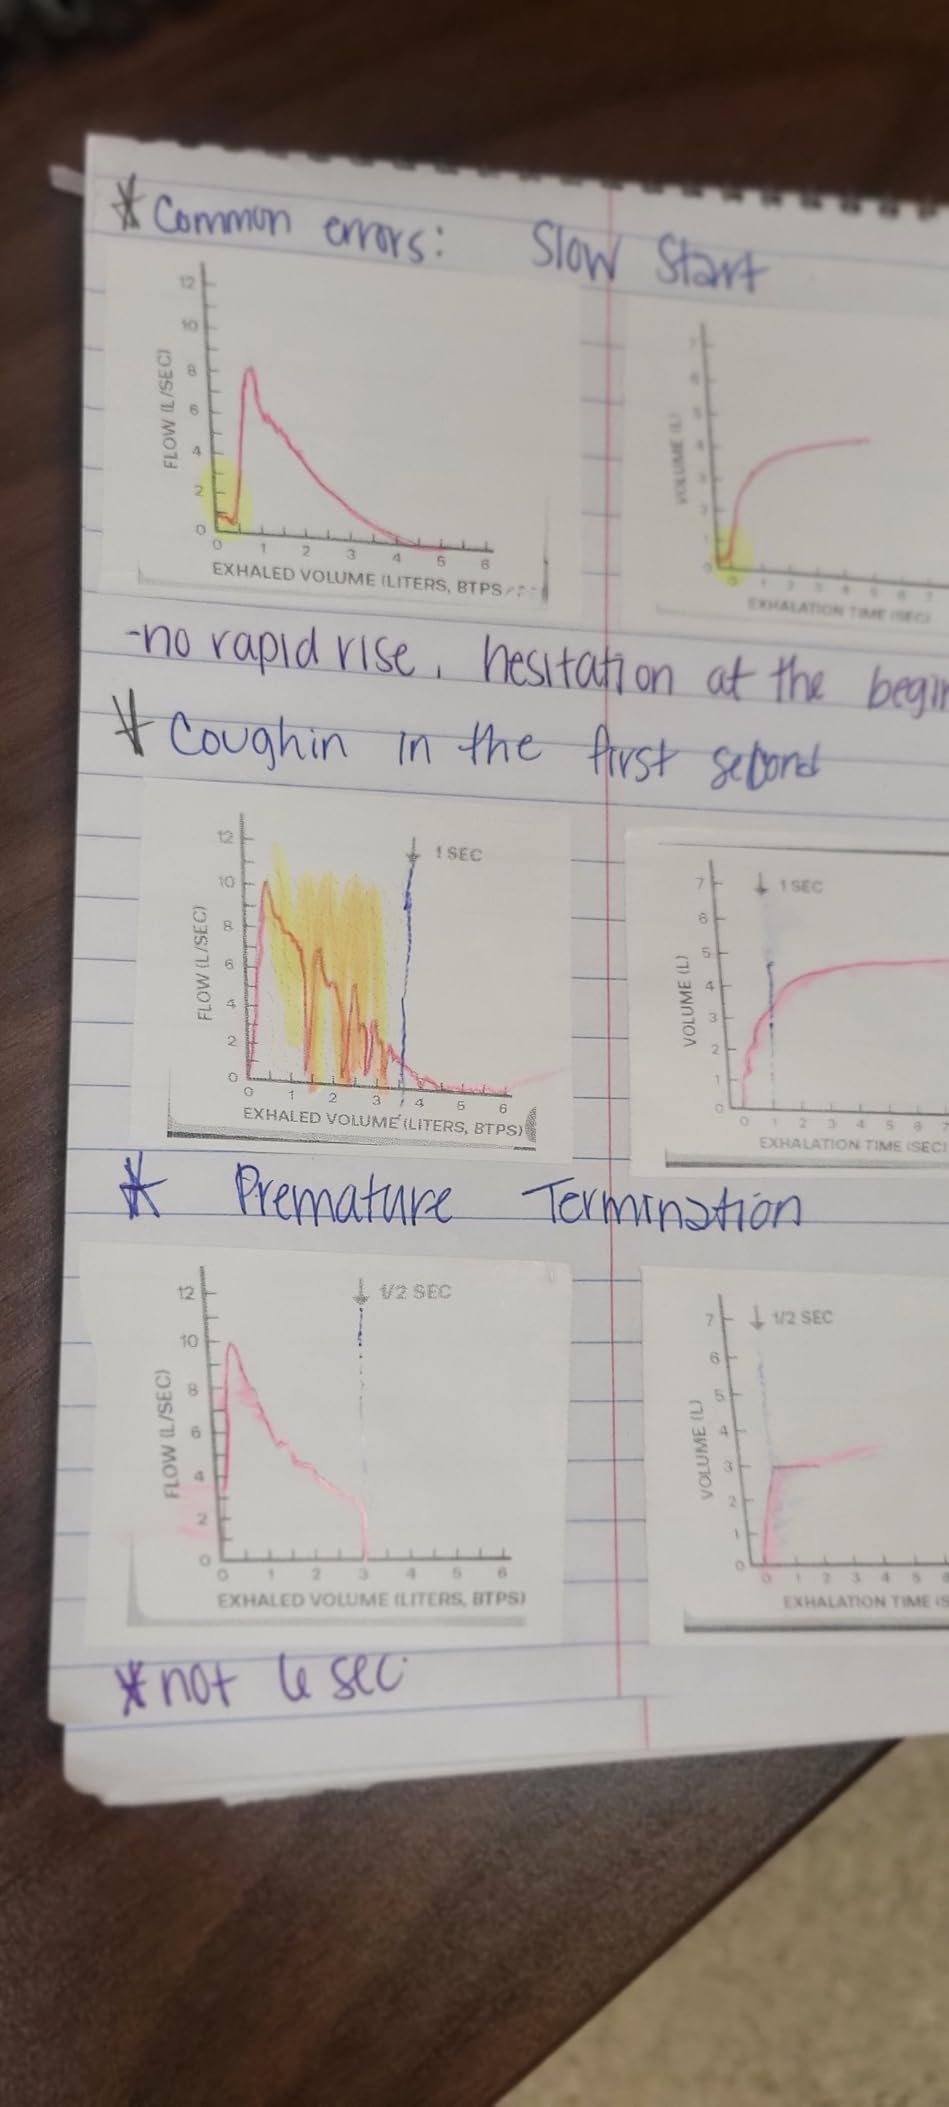 * Common errors: Slow Start
12
10
8
6
4
2
0
FLOW (L/SEC)
0 1 2 3 4 5 6
EXHALED VOLUME (LITERS, BTPS
VOLUME (L)
EXHALATION TIME (SEC)
-no rapid rise, hesitation at the begin
* Coughin in the first second
12
10
8
6
4
2
0
FLOW (L/SEC)
1 SEC
0 1 2 3 4 5 6
EXHALED VOLUME (LITERS, BTPS)
7
6
5
4
3
2
1
0
VOLUME (L)
1 SEC
0 1 2 3 4 5 6 7
EXHALATION TIME (SEC)
* Premature Termination
12
10
8
6
4
2
0
FLOW (L/SEC)
1/2 SEC
0 1 2 3 4 5 6
EXHALED VOLUME (LITERS, BTPS)
7
6
5
4
3
2
1
0
VOLUME (L)
1/2 SEC
0 1 2 3 4 5
EXHALATION TIME (S
* not 6 sec